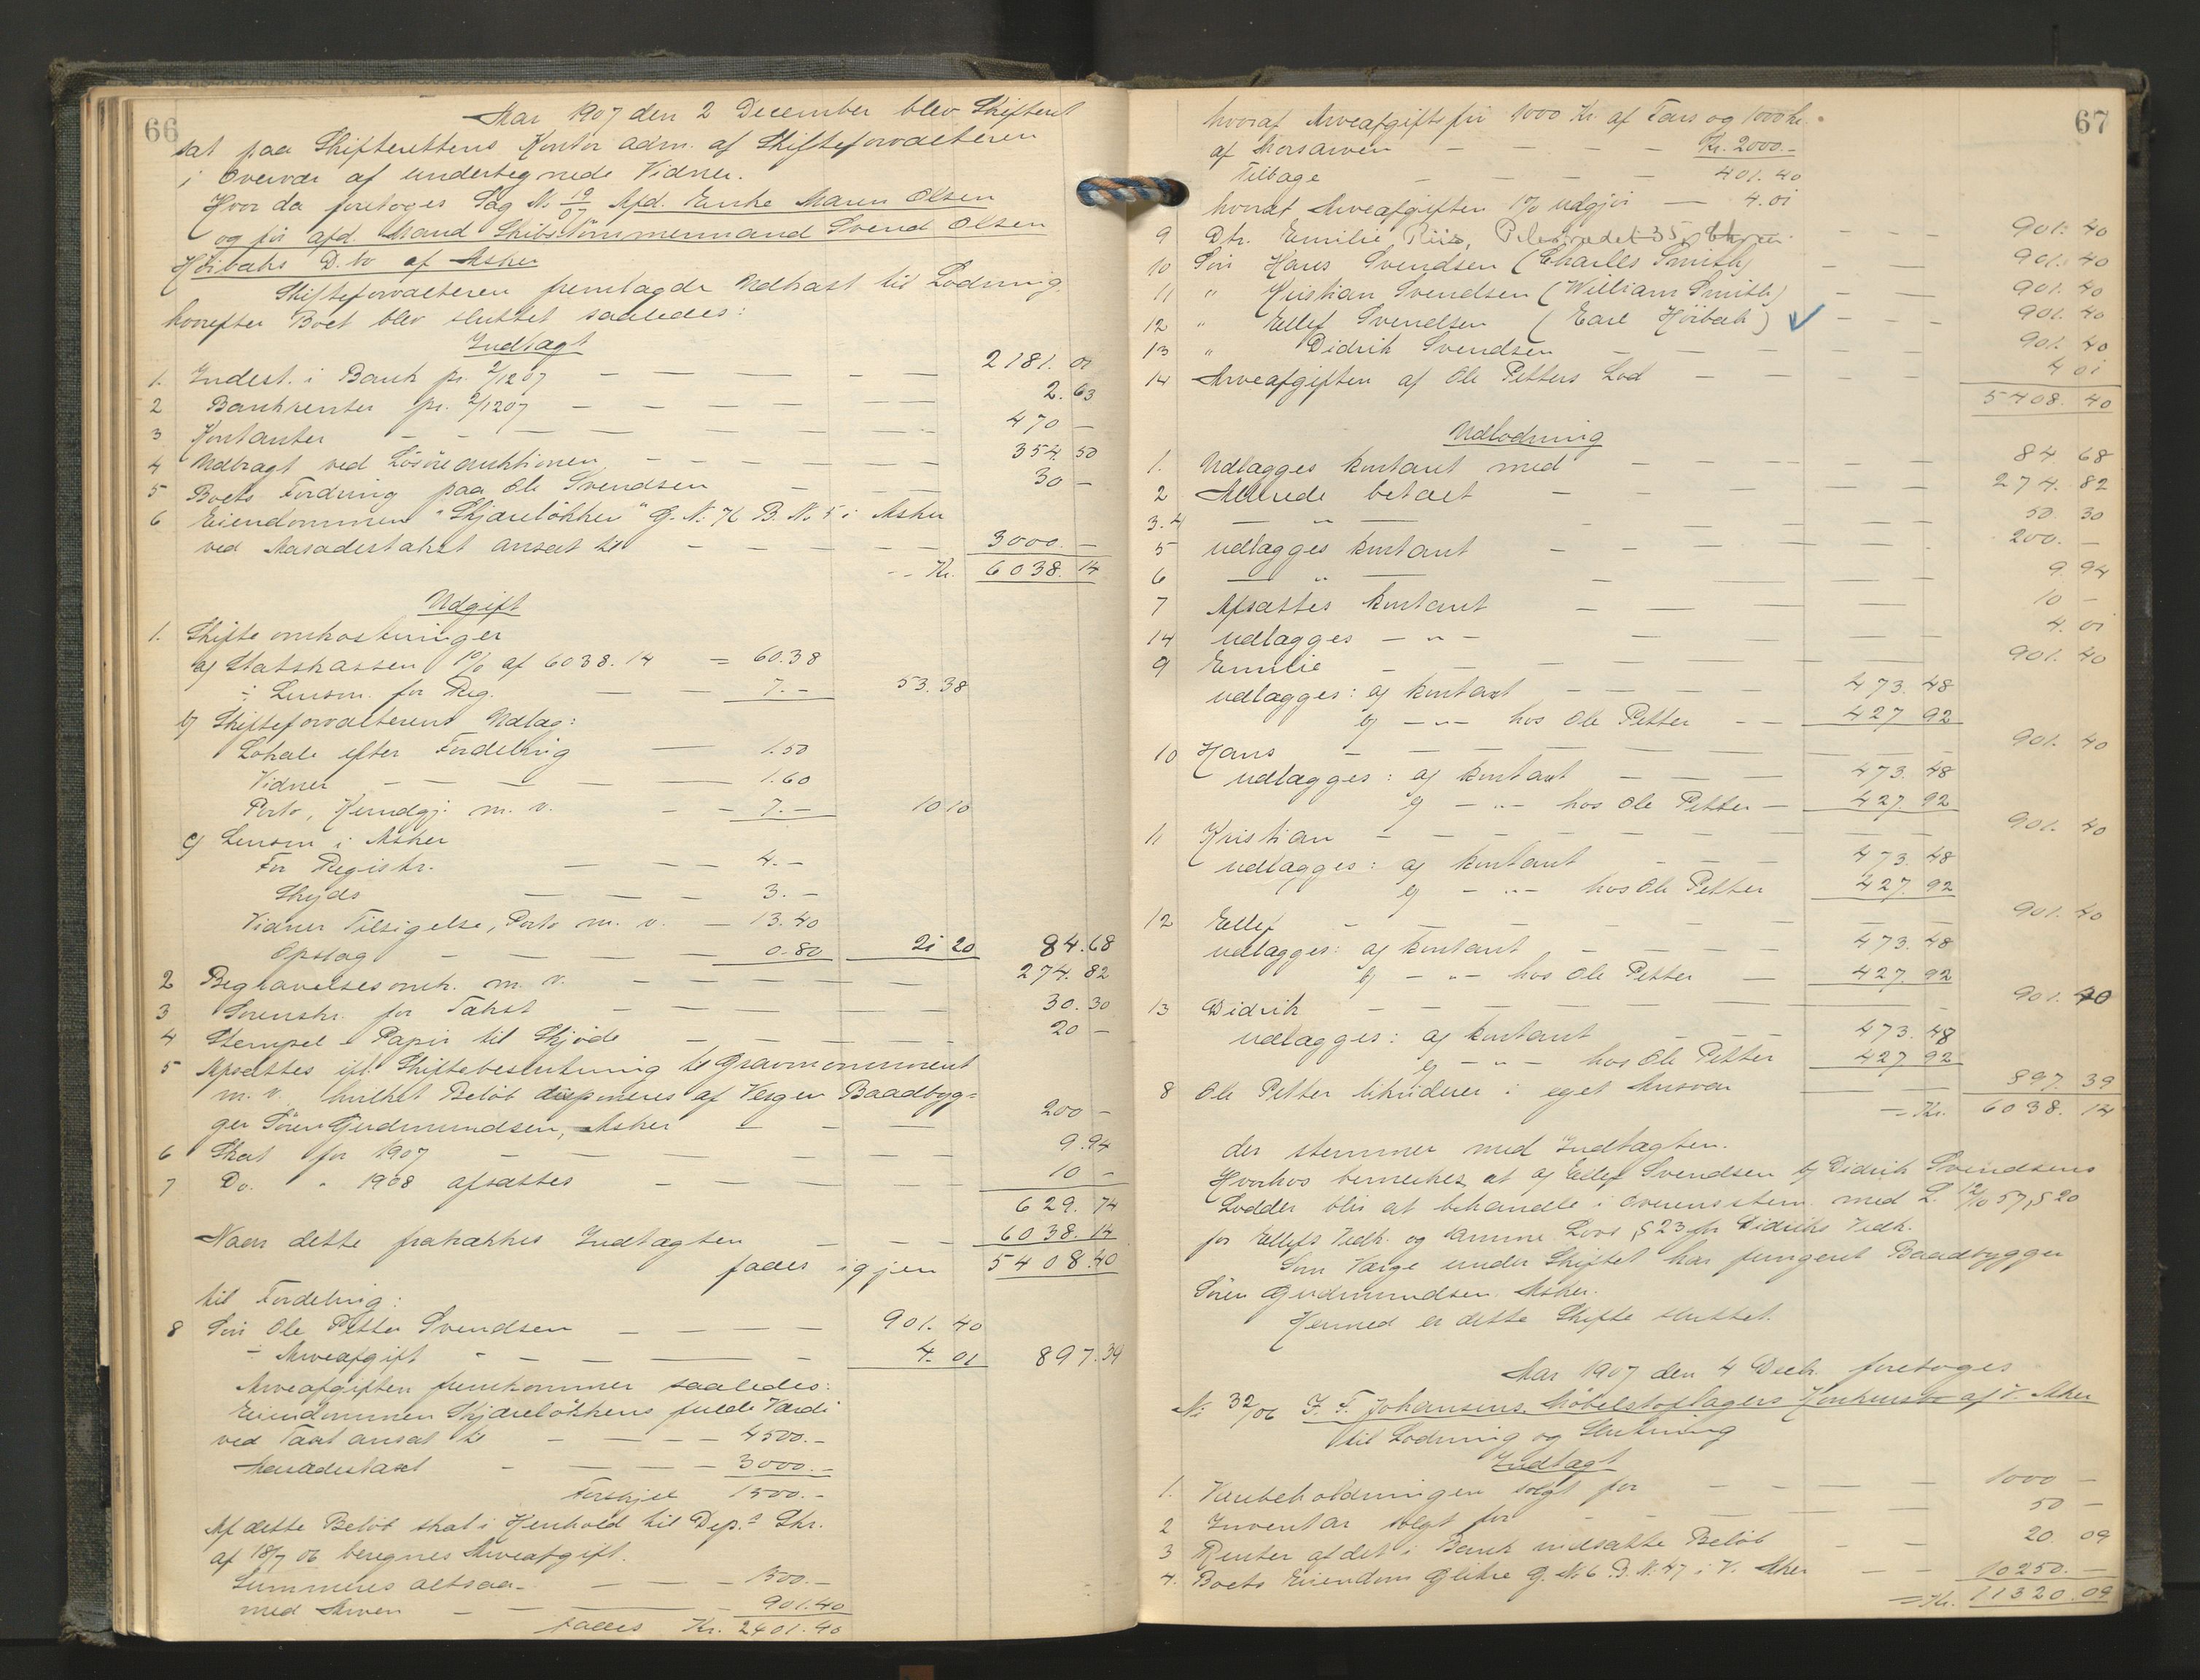 66
Aar 1907 den 2 December blev Skifteret
sat paa Skifterettens Kontor adm. af Skifteforvalteren
i Overvær af undertegnede Vidner.
Hvor da foretoges Sag N. 19/07 Afd. Enke Maren Olsen
og før afd. Mand Skibstömmermand Svend Olsen
Höibaks D.bo af Asker
Skifteforvalteren fremlagde Udkast til Lodning
hvorefter Boet blev sluttet saaledes:
Indtægt
1. Indest. i Bank pr. 2/12 07 — — — — — — 2181. 01
2 Bankrenter pr. 2/12 07 — — — — — 2. 63
3 Kontanter — — — — — — 470 —
4 Udbragt ved Lösöreauktionen — — — — — 354. 50
5 Boets Fordring paa Ole Svendsen — — — 30 —
6 Eiendommen "Skjærelökken" G. N: 76 B. N: 5 i Asker
ved Arsadestaxt ansat til — — — — — 3000. —
-- Kr. 6038. 14
Udgift
1. Skifteomkostninger
a) Statskassen 1% af 6038.14 = 60.38
÷ Lensm. for Reg. — — 7.- 53.38
b) Skifteforvalterens Udlæg:
Lokale efter Fordeling — 1.50
Vidner — — — — 1.60
Porto, Kundgj. m. v. — — 7.- 10 10
c) Lensm i Asker
For Registr. — — — 4.-
Skyds — — — — 3.-
Vidner Tilsigelse, Porto m. v. — 13.40
Opslag — — — — 0.80 21 20 84.68
2 Begravelsesomk. m. v. — — — — — 274. 82
3 Sorenskr. for Takst — — — — — 30. 30
4 Stempel-Papir til Skjöde — — — — — 20 —
5 Afsættes ifl. Skiftebeslutning til Gravmonument
m. v. hvilket Belöb disponeres af Værgen Baadbyg=
ger Sören Gudmundsen, Asker — — — 200 —
6 Skat for 1907 — — — — — 9.94
7 Do. " 1908 afsættes — — — — 10 —
629. 74
Naar dette fratrækkes Indtægten — — — 6038. 14
faaes igjen 5408.40
til Fordeling:
8 Sön Ole Petter Svendsen — — — — 901. 40
÷ Arveafgift — — — — — 4. 01 897.39
Arveafgiften fremkommer saaledes:
Eiendommen Skjærelökkens fulde Værdi
ved Taxt ansat til — — — — 4500.-
Arsadestaxt — — — — 3000.-
Forskjel 1500.-
Af dette Belöb skal i Henhold til Dep.s Skr.
af 18/7 06 beregnes Arveafgift.
Summeres altsaa — — — 1500.-
med Arven — — — — 901.40
faaes Kr. 2401.40
67
hvoraf Arveafgiftsfri 1000 Kr. af Fars og 1000 kr.
af Morsarven — — — — Kr. 2000.-
Tilbage — — — — 401. 40
hvoraf Arveafgiften 1% udgjör — 4. 01
9 Dtr. Emilie Riis, Pilestrædet 35, — — — 901. 40
10 Sön Hans Svendsen (Charles Smith) — — — 901. 40
11 " Kristian Svendsen (William Smith) — — — 901. 40
12 " Ellef Svendsen (Earl Höibak) — — — 901. 40
13 " Didrik Svendsen — — — — — 901. 40
14 Arveafgiften af Ole Petters Lod — — — — 4 01
5408. 40
Udlodning
1. Udlægges kontant med — — — — — 84. 68
2 Allerede betalt — — — — — — 274. 82
3.4 — " — — — — — — — 50 30
5 udlægges kontant — — — — — — 200. —
6 — " — — — — — — 9. 94
7 Afsættes kontant — — — — — 10 —
14 udlægges — " — — — — — 4. 01
9 Emilie — — — — — — — 901. 40
udlægges: a) kontant — — — — 473. 48
b) — " — hos Ole Petter — — 427 92
10 Hans — — — — — — — 901. 40
udlægges: a) kontant — — — 473. 48
b) — " — hos Ole Petter — 427. 92
11 Kristian — — — — — — — 901. 40
udlægges: a) kontant — — — 473. 48
b) — " — hos Ole Petter 427. 92
12 Ellef — — — — — — — 901. 40
udlægges: a) kontant — — — 473. 48
b) — " — hos Ole Petter — 427. 92
13 Didrik — — — — — — — 901. 40
udlægges: a) kontant — — 473. 48
b) — " — hos Ole Petter 427 92
8 Ole Petter likviderer i eget Ansvar — — 897. 39
= Kr. 6038. 14
der stemmer med Indtægten.
Hvorhos bemerkes, at a) Ellef Svendsen b) Didrik Svendsens
Lodder blir at behandle i overensstem. med L. 12/10 57, § 20
for Ellefs Vedk. og samme Lovs § 23 for Didriks Vedk.
Som Værge under Skiftet har fungeret Baadbygger
Sören Gudmundsen. Asker.
Hermed er dette Skifte sluttet.
Aar 1907 den 4 Decbr. foretoges
N: 32/06 J. F. Johansens Möbelstoflagers Konkursbo af V. Aker
til Lodning og Slutning
Indtægt
1. Varebeholdningen solgt for — — — — — 1000 —
2 Inventar solgt for — — — — — 50 —
3 Renter af det i Bank indsatte Belöb — — 20. 09
4. Boets Eiendom Glitre G. N. 6 B. N. 47 i V. Aker — — 10250. —
= Kr. 11320. 09